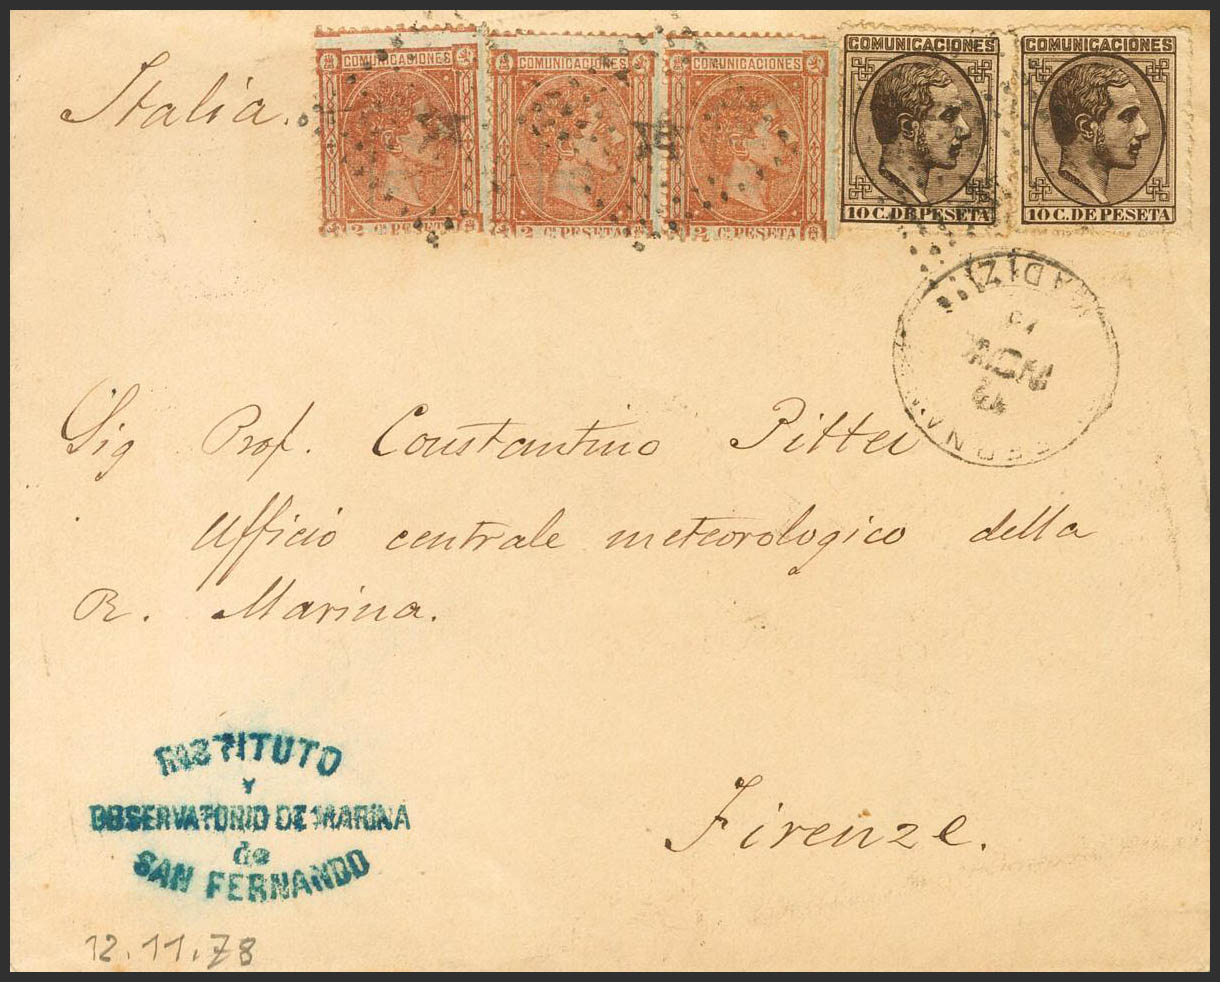 Italia.
COMUNICACIONES
2 C. PESETA
COMUNICACIONES
2 C. PESETA
COMUNICACIONES
2 C. PESETA
COMUNICACIONES
10 C. DE PESETA
COMUNICACIONES
10 C. DE PESETA
CADIZ
Sig Prof. Constantino Pittei
Ufficio centrale meteorologico della
R. Marina.
INSTITUTO
Y
OBSERVATORIO DE MARINA
de
SAN FERNANDO
Firenze.
12.11.78